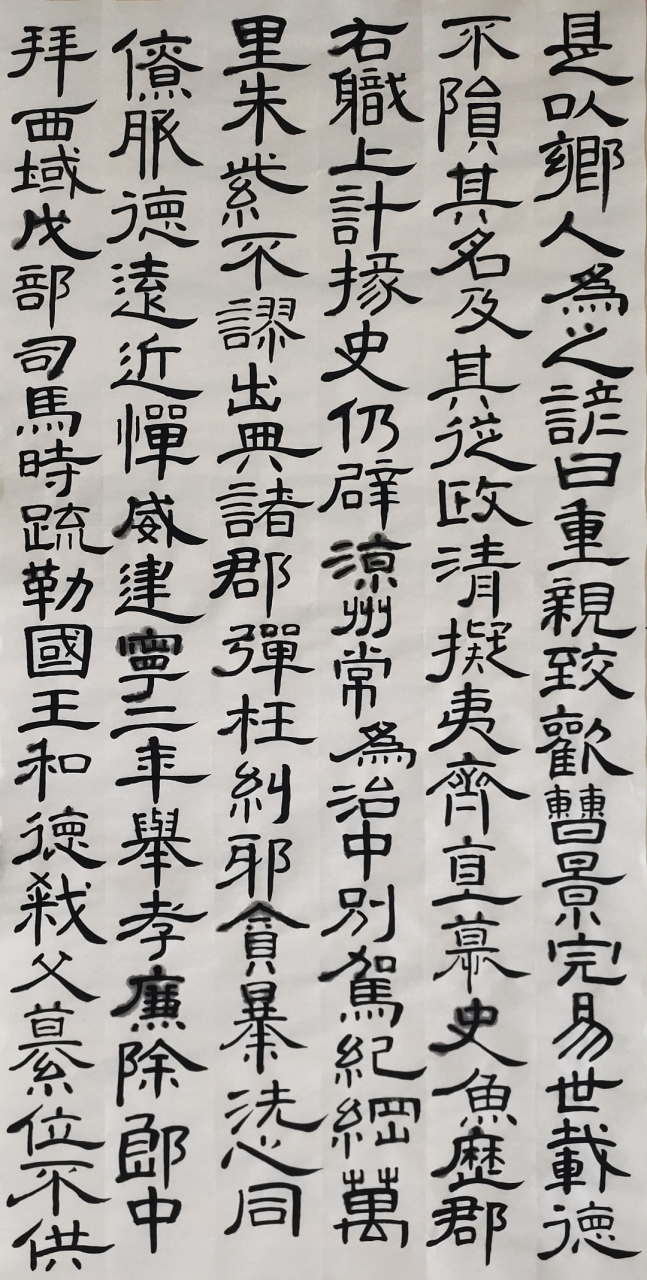 是以鄉人爲之諺曰重親致歡曹景完易世載德
不隕其名及其從政清擬夷齊直慕史魚歷郡
右職上計掾史仍辟涼州常爲治中別駕紀綱萬
里朱紫不謬出典諸郡彈枉糾邪貪暴洗心同
僚服德遠近憚威建寧二年舉孝廉除郎中
拜西域戊部司馬時疏勒國王和德弒父篡位不供